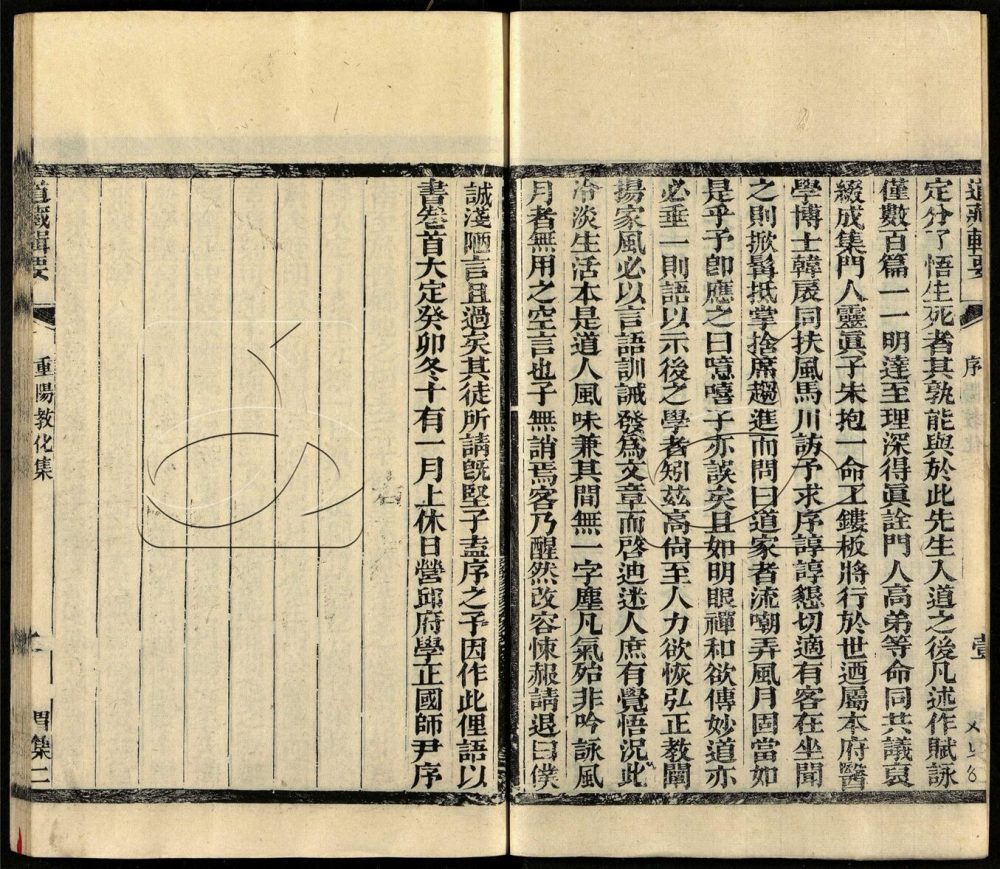 道藏輯要
序
壹
定分了悟生死者其孰能與於此先生入道之後凡述作賦詠
僅數百篇一一明達至理深得眞詮門人高弟等命同共議裒
綴成集門人靈眞子朱抱一命工鏤板將行於世迺屬本府醫
學博士韓展同扶風馬川訪予求序諄諄懇切適有客在坐聞
之則掀髯抵掌捨席趨進而問曰道家者流嘲弄風月固當如
是乎予卽應之曰噫嘻子亦誤矣且如明眼禪和欲傳妙道亦
必垂一則語以示後之學者矧茲高尙至人力欲恢弘正教闡
揚家風必以言語訓誡發爲文章而啓迪迷人庶有覺悟況此
冷淡生活本是道人風味兼其間無一字塵凡氣殆非吟詠風
月者無用之空言也子無誚焉客乃醒然改容悚赧請退曰僕
誠淺陋言且過矣其徒所請旣堅子盍序之予因作此俚語以
書卷首大定癸卯冬十有一月上休日營邱府學正國師尹序
道藏輯要
重陽教化集
胃集二